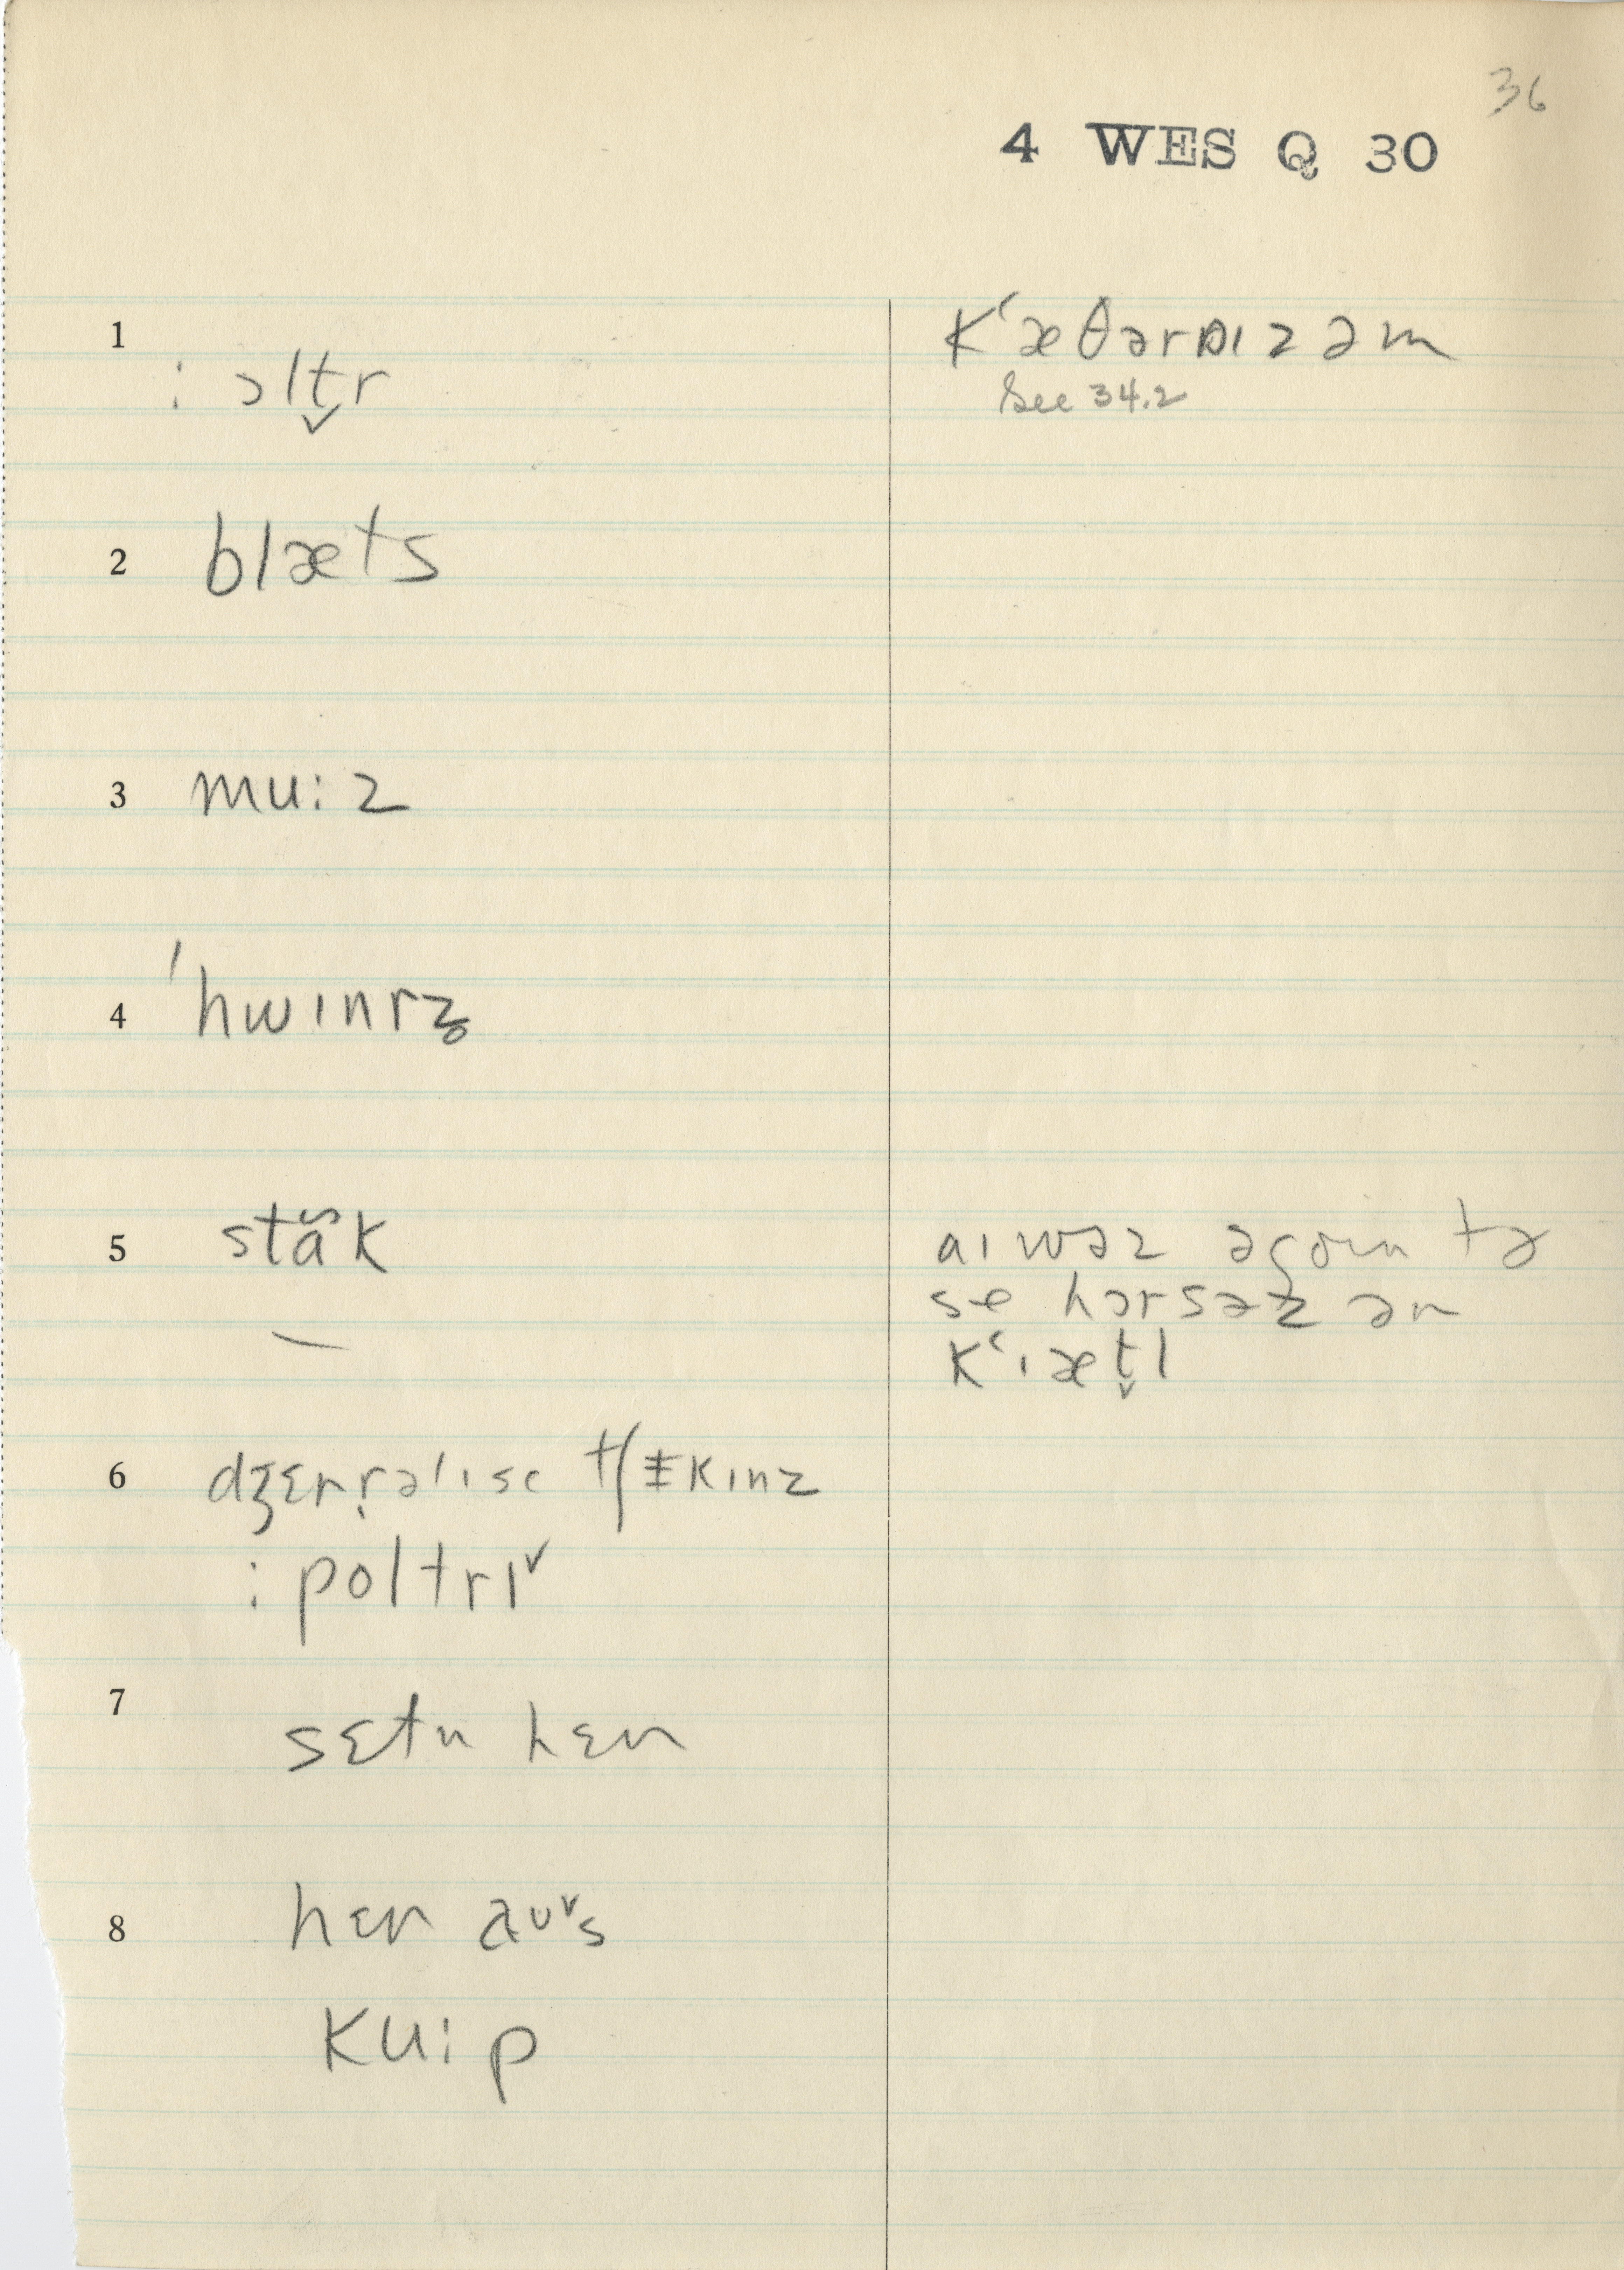 36
4 WES Q 30
1 : ɔlt̬r
kʻæθərɒɪzəm
See 34.2
2 blæts
3 mu:z
4 ˈhwɪnrz̥
5 stɑ̆k
aɪwəz əgoɪn tə
se hɔrsəz̥ ən
kʻɪæt̬l
6 dʒɛnr̩əlɪse tʃɪkɪnz
: poltrɪ˅
7 sɛtn hɛn
8 hɛn aʊ˅s
ku:p